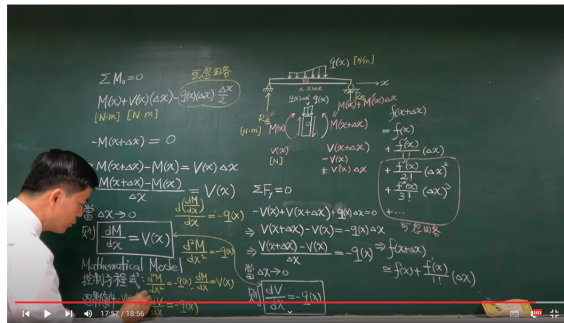 ΣM₀=0
可忽略
M(x)+V(x)(Δx)-q(x)(Δx)Δx/2
[N·m] [N·m]
-M(x+Δx) = 0
M(x+Δx)-M(x)=V(x)Δx
M(x+Δx)-M(x)/Δx = V(x)
當 Δx→0
則 dM/dx = V(x)
d(dM/dx)/dx = -q(x)
d²M/dx² = -q(x)
Mathematical Model
控制方程式: d²M/dx² = -q(x), dM/dx = V(x)
= -q(x)
q(x) [N/m]
x x+Δx
→x
q(x)
M(x)+M'(x)Δx
[N·m] M(x)
M(x+Δx)
V(x)
[N]
V(x+Δx)
=V(x)
+V'(x)Δx
ΣFy=0
-V(x)+V(x+Δx)+q(x)Δx=0
⇒ V(x+Δx)-V(x)=-q(x)Δx
⇒ V(x+Δx)-V(x)/Δx = -q(x)
當 Δx→0
則 dV/dx = -q(x)
f(x+Δx)
= f(x)
+ f'(x)/1! (Δx)
+ f''(x)/2! (Δx)²
+ f'''(x)/3! (Δx)³
+...
可忽略
⇒ f(x+Δx)
≅ f(x)+ f'(x)/1! (Δx)
17:57 / 18:56